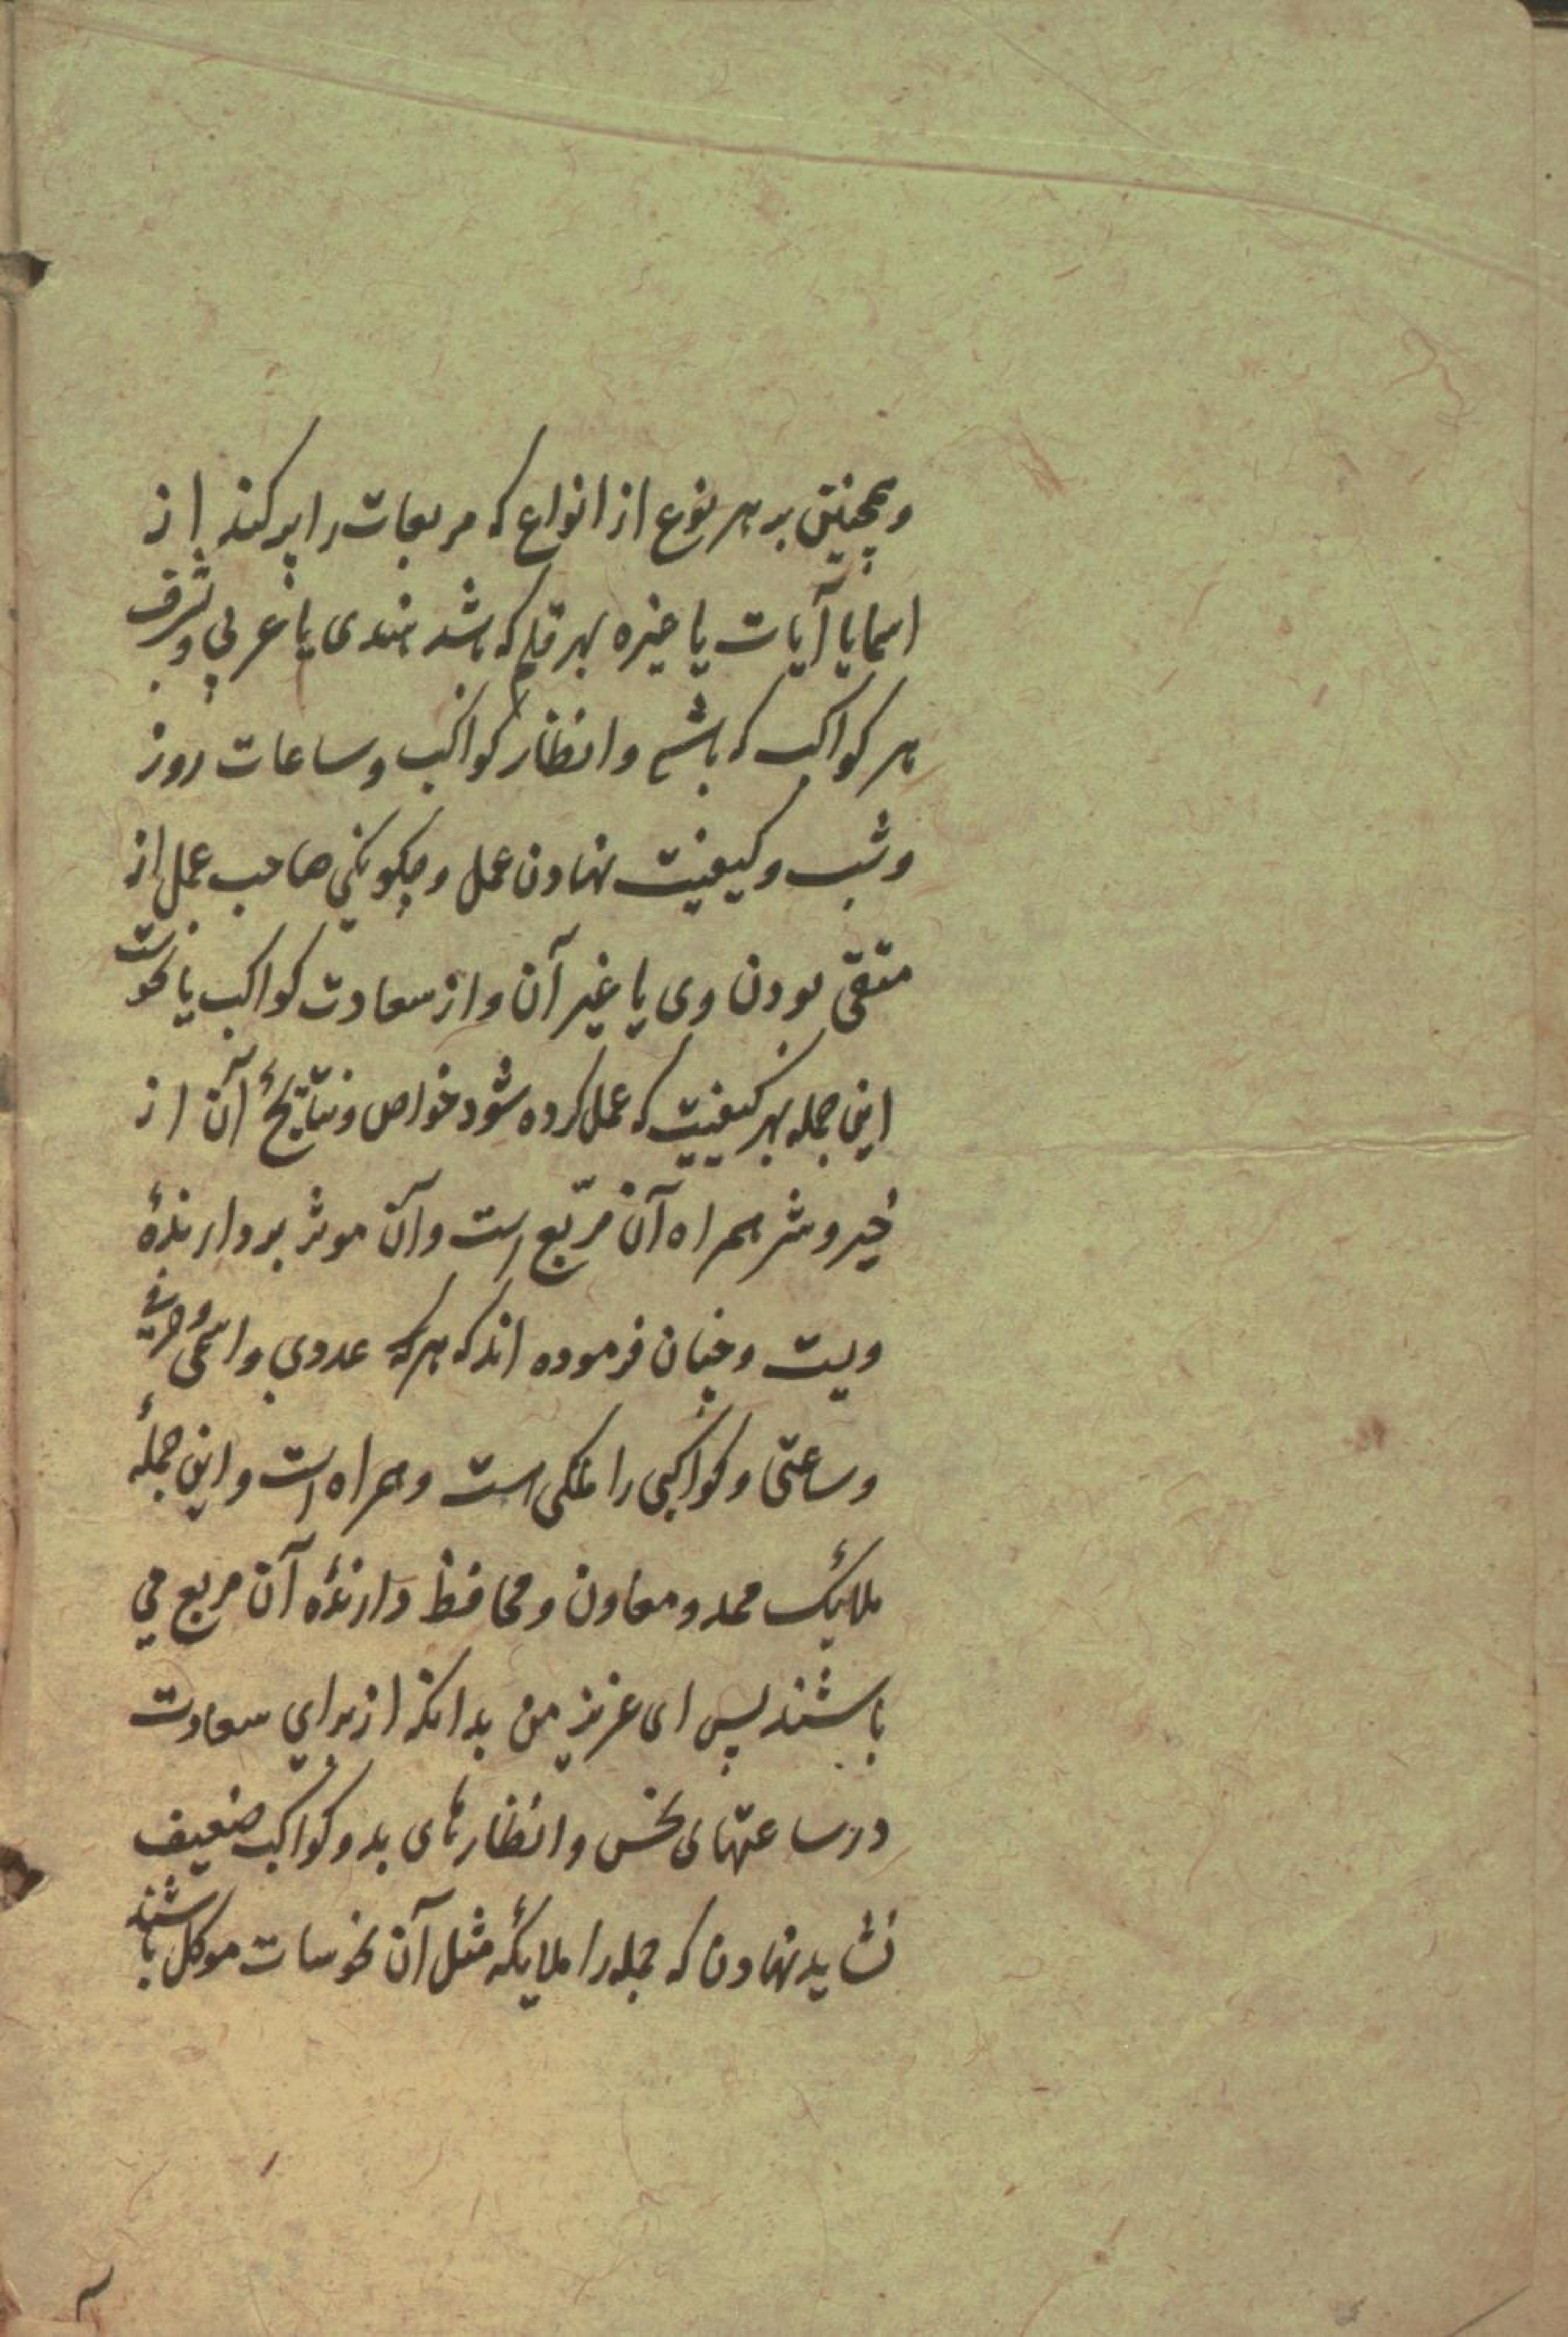 وهمچنین بر هر نوع از انواع که مربعات را پر کند از
اسما یا آیات یا غیره بهر قلم که باشد هندی یا عربی و شرف
هر کواکب که باشد وانظار کواکب وساعات روز
وشب وکیفیت نهادن عمل وچکونکی صاحب عمل از
متقی بودن وی یا غیر آن واز سعادت کواکب یا نحوست
این جمله بهر کیفیت که عمل کرده شود خواص ونتایج آن از
خیر وشر همراه آن مربّع است وآن موثر بر دارندهٔ
ویست وچنان فرموده اند که هر عددی واسمی وحرفی
وساعتی وکواکبی را ملکی است وهمراه است واین جملهٔ
ملائک ممد ومعاون ومحافظ دارندهٔ آن مربع می
باشند پس ای عزیز من بدانکه از برای سعادت
در ساعتهای نحس وانظارهای بد وکواکب ضعیف
نشاید نهادن که جمله را ملایکه مثل آن نحوسات موکل باشند